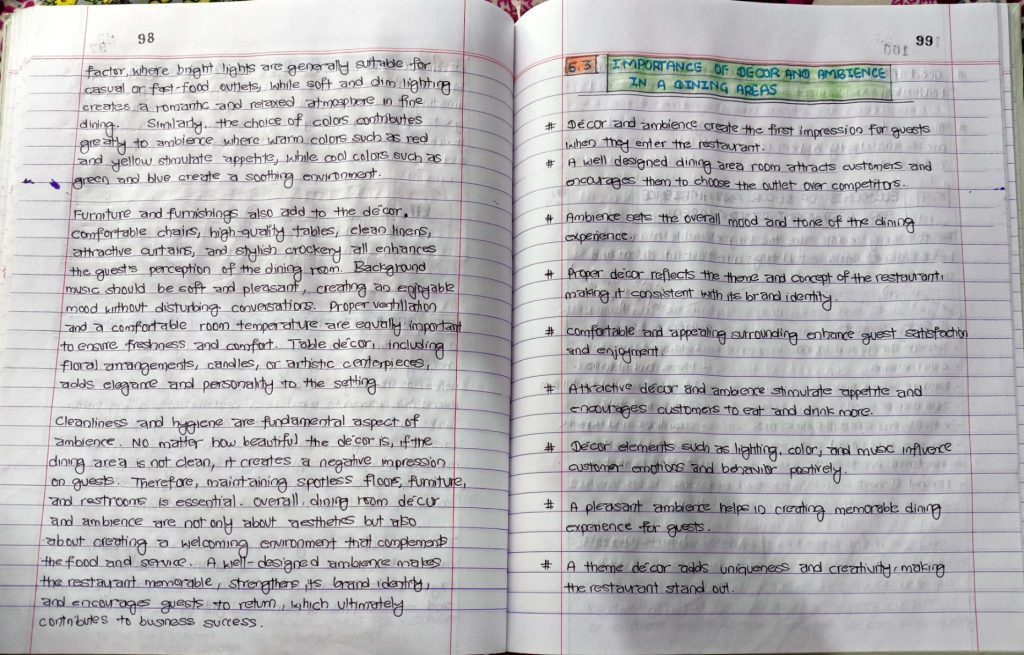 98
factor, where bright lights are generally suitable for
casual or fast-food outlets, while soft and dim lighting
creates a romantic and relaxed atmosphere in fine
dining. Similarly, the choice of colors contributes
greatly to ambience where warm colors such as red
and yellow stimulate appetite, while cool colors such as
green and blue create a soothing environment.
Furniture and furnishings also add to the décor,
comfortable chairs, high-quality tables, clean linens,
attractive curtains, and stylish crockery all enhances
the guests perception of the dining room. Background
music should be soft and pleasant, creating an enjoyable
mood without disturbing conversations. Proper ventilation
and a comfortable room temperature are equally important
to ensure freshness and comfort. Table décor, including
floral arrangements, candles, or artistic centerpieces,
adds elegance and personality to the setting.
Cleanliness and hygiene are fundamental aspect of
ambience. No matter how beautiful the décor is, if the
dining area is not clean, it creates a negative impression
on guests. Therefore, maintaining spotless floors, furniture,
and restrooms is essential. overall, dining room décor
and ambience are not only about aesthetics but also
about creating a welcoming environment that complements
the food and service. A well-designed ambience makes
the restaurant memorable, strengthens its brand identity,
and encourages guests to return, which ultimately
contributes to business success.
99
6.3 IMPORTANCE OF DECOR AND AMBIENCE
IN A DINING AREAS
# Décor and ambience create the first impression for guests
when they enter the restaurant.
# A well designed dining area room attracts customers and
encourages them to choose the outlet over competitors.
# Ambience sets the overall mood and tone of the dining
experience.
# Proper décor reflects the theme and concept of the restaurant,
making it consistent with its brand identity.
# comfortable and appealing surrounding enhance guest satisfaction
and enjoyment.
# Attractive décor and ambience stimulate appetite and
encourages customers to eat and drink more.
# Décor elements such as lighting, color, and music influence
customer emotions and behavior positively.
# A pleasant ambience helps in creating memorable dining
experience for guests.
# A theme décor adds uniqueness and creativity, making
the restaurant stand out.